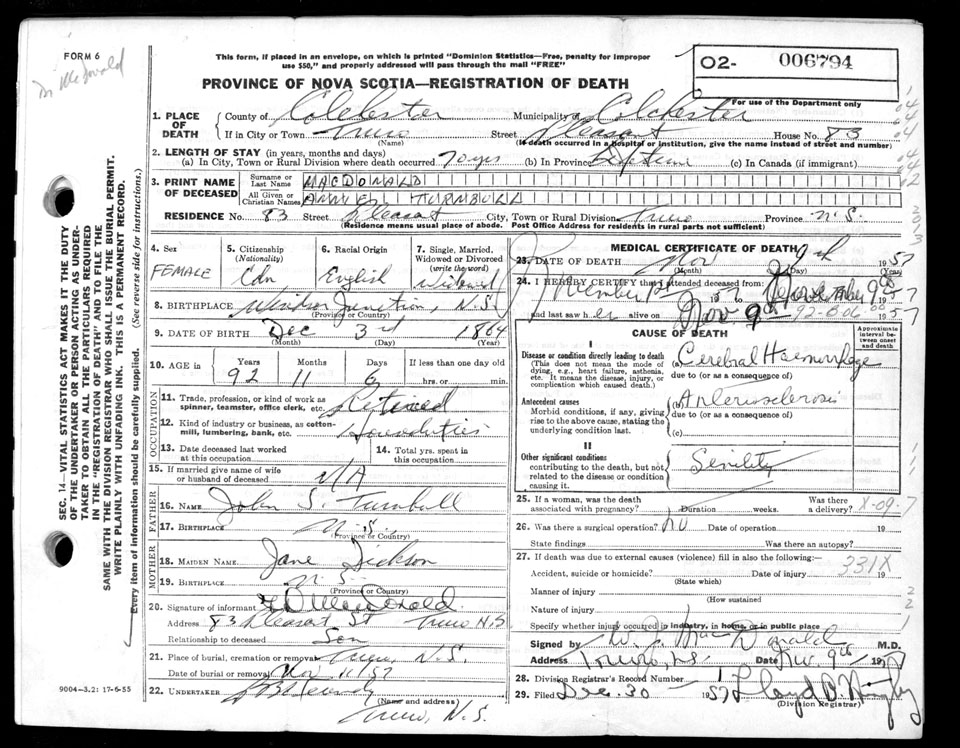 FORM 6
Dr McDonald
This form, if placed in an envelope, on which is printed "Dominion Statistics—Free, penalty for improper
use $50," and properly addressed will pass through the mail "FREE"
O2- 006794
For use of the Department only
PROVINCE OF NOVA SCOTIA—REGISTRATION OF DEATH
SEC. 14—VITAL STATISTICS ACT MAKES IT THE DUTY
OF THE UNDERTAKER OR PERSON ACTING AS UNDER-
TAKER TO OBTAIN ALL THE PARTICULARS REQUIRED
IN THE "REGISTRATION OF DEATH" AND TO FILE THE
SAME WITH THE DIVISION REGISTRAR WHO SHALL ISSUE THE BURIAL PERMIT.
WRITE PLAINLY WITH UNFADING INK. THIS IS A PERMANENT RECORD.
Every item of information should be carefully supplied. (See reverse side for instructions.)
1. PLACE OF DEATH County of Colchester Municipality of Colchester
If in City or Town Truro (Name) Street Pleasant House No. 83
(If death occurred in a hospital or institution, give the name instead of street and number)
2. LENGTH OF STAY (in years, months and days)
(a) In City, Town or Rural Division where death occurred 70 yrs (b) In Province Lifetime (c) In Canada (if immigrant)
3. PRINT NAME OF DECEASED Surname or Last Name MACDONALD
All Given or Christian Names ANNIE TURNBULL
RESIDENCE No. 83 Street Pleasant City, Town or Rural Division Truro Province N.S.
(Residence means usual place of abode. Post Office Address for residents in rural parts not sufficient)
4. Sex FEMALE
5. Citizenship (Nationality) Cdn
6. Racial Origin English
7. Single, Married, Widowed or Divorced (write the word) Widowed
8. BIRTHPLACE Windsor Junction, N.S.
(Province or Country)
9. DATE OF BIRTH Dec 3rd 1864
(Month) (Day) (Year)
10. AGE in Years 92 Months 11 Days 6 If less than one day old hrs. or min.
OCCUPATION
11. Trade, profession, or kind of work as spinner, teamster, office clerk, etc. Retired
12. Kind of industry or business, as cotton-mill, lumbering, bank, etc.
13. Date deceased last worked at this occupation
14. Total yrs. spent in this occupation
15. If married give name of wife or husband of deceased N/A
FATHER
16. NAME John S. Turnbull
17. BIRTHPLACE N.S.
(Province or Country)
MOTHER
18. MAIDEN NAME Jane Dickson
19. BIRTHPLACE N.S.
(Province or Country)
20. Signature of informant
Address 83 Pleasant St Truro N.S
Relationship to deceased Son
21. Place of burial, cremation or removal Truro, N.S.
Date of burial or removal Nov 11/57
22. UNDERTAKER
(Name and address)
Truro, N.S.
9004-3.2: 17-6-55
MEDICAL CERTIFICATE OF DEATH
23. DATE OF DEATH Nov 9th 1957
(Month) (Day) (Year)
24. I HEREBY CERTIFY that I attended deceased from: November 1st 1956 to November 9th 1957
and last saw her alive on Nov. 9th 1957
CAUSE OF DEATH
Approximate interval between onset and death
I
Disease or condition directly leading to death
(This does not mean the mode of dying, e.g., heart failure, asthenia, etc. It means the disease, injury, or complication which caused death.)
(a) Cerebral Haemorrhage
due to (or as a consequence of)
Antecedent causes
Morbid conditions, if any, giving rise to the above cause, stating the underlying condition last.
Arteriosclerosis
due to (or as a consequence of)
(c)
II
Other significant conditions
contributing to the death, but not related to the disease or condition causing it.
Senility
25. If a woman, was the death associated with pregnancy? Duration weeks. Was there a delivery? X-09-7
26. Was there a surgical operation? No Date of operation 19
State findings Was there an autopsy?
27. If death was due to external causes (violence) fill in also the following:—
331X
Accident, suicide or homicide? Date of injury 19
(State which)
Manner of injury
(How sustained
Nature of injury
Specify whether injury occurred in industry, in home, or in public place
Signed by W. J. MacDonald M.D.
Address Truro, N.S. Date Nov. 9th 1957
28. Division Registrar's Record Number
29. Filed Dec. 30 1957
(Division Registrar)